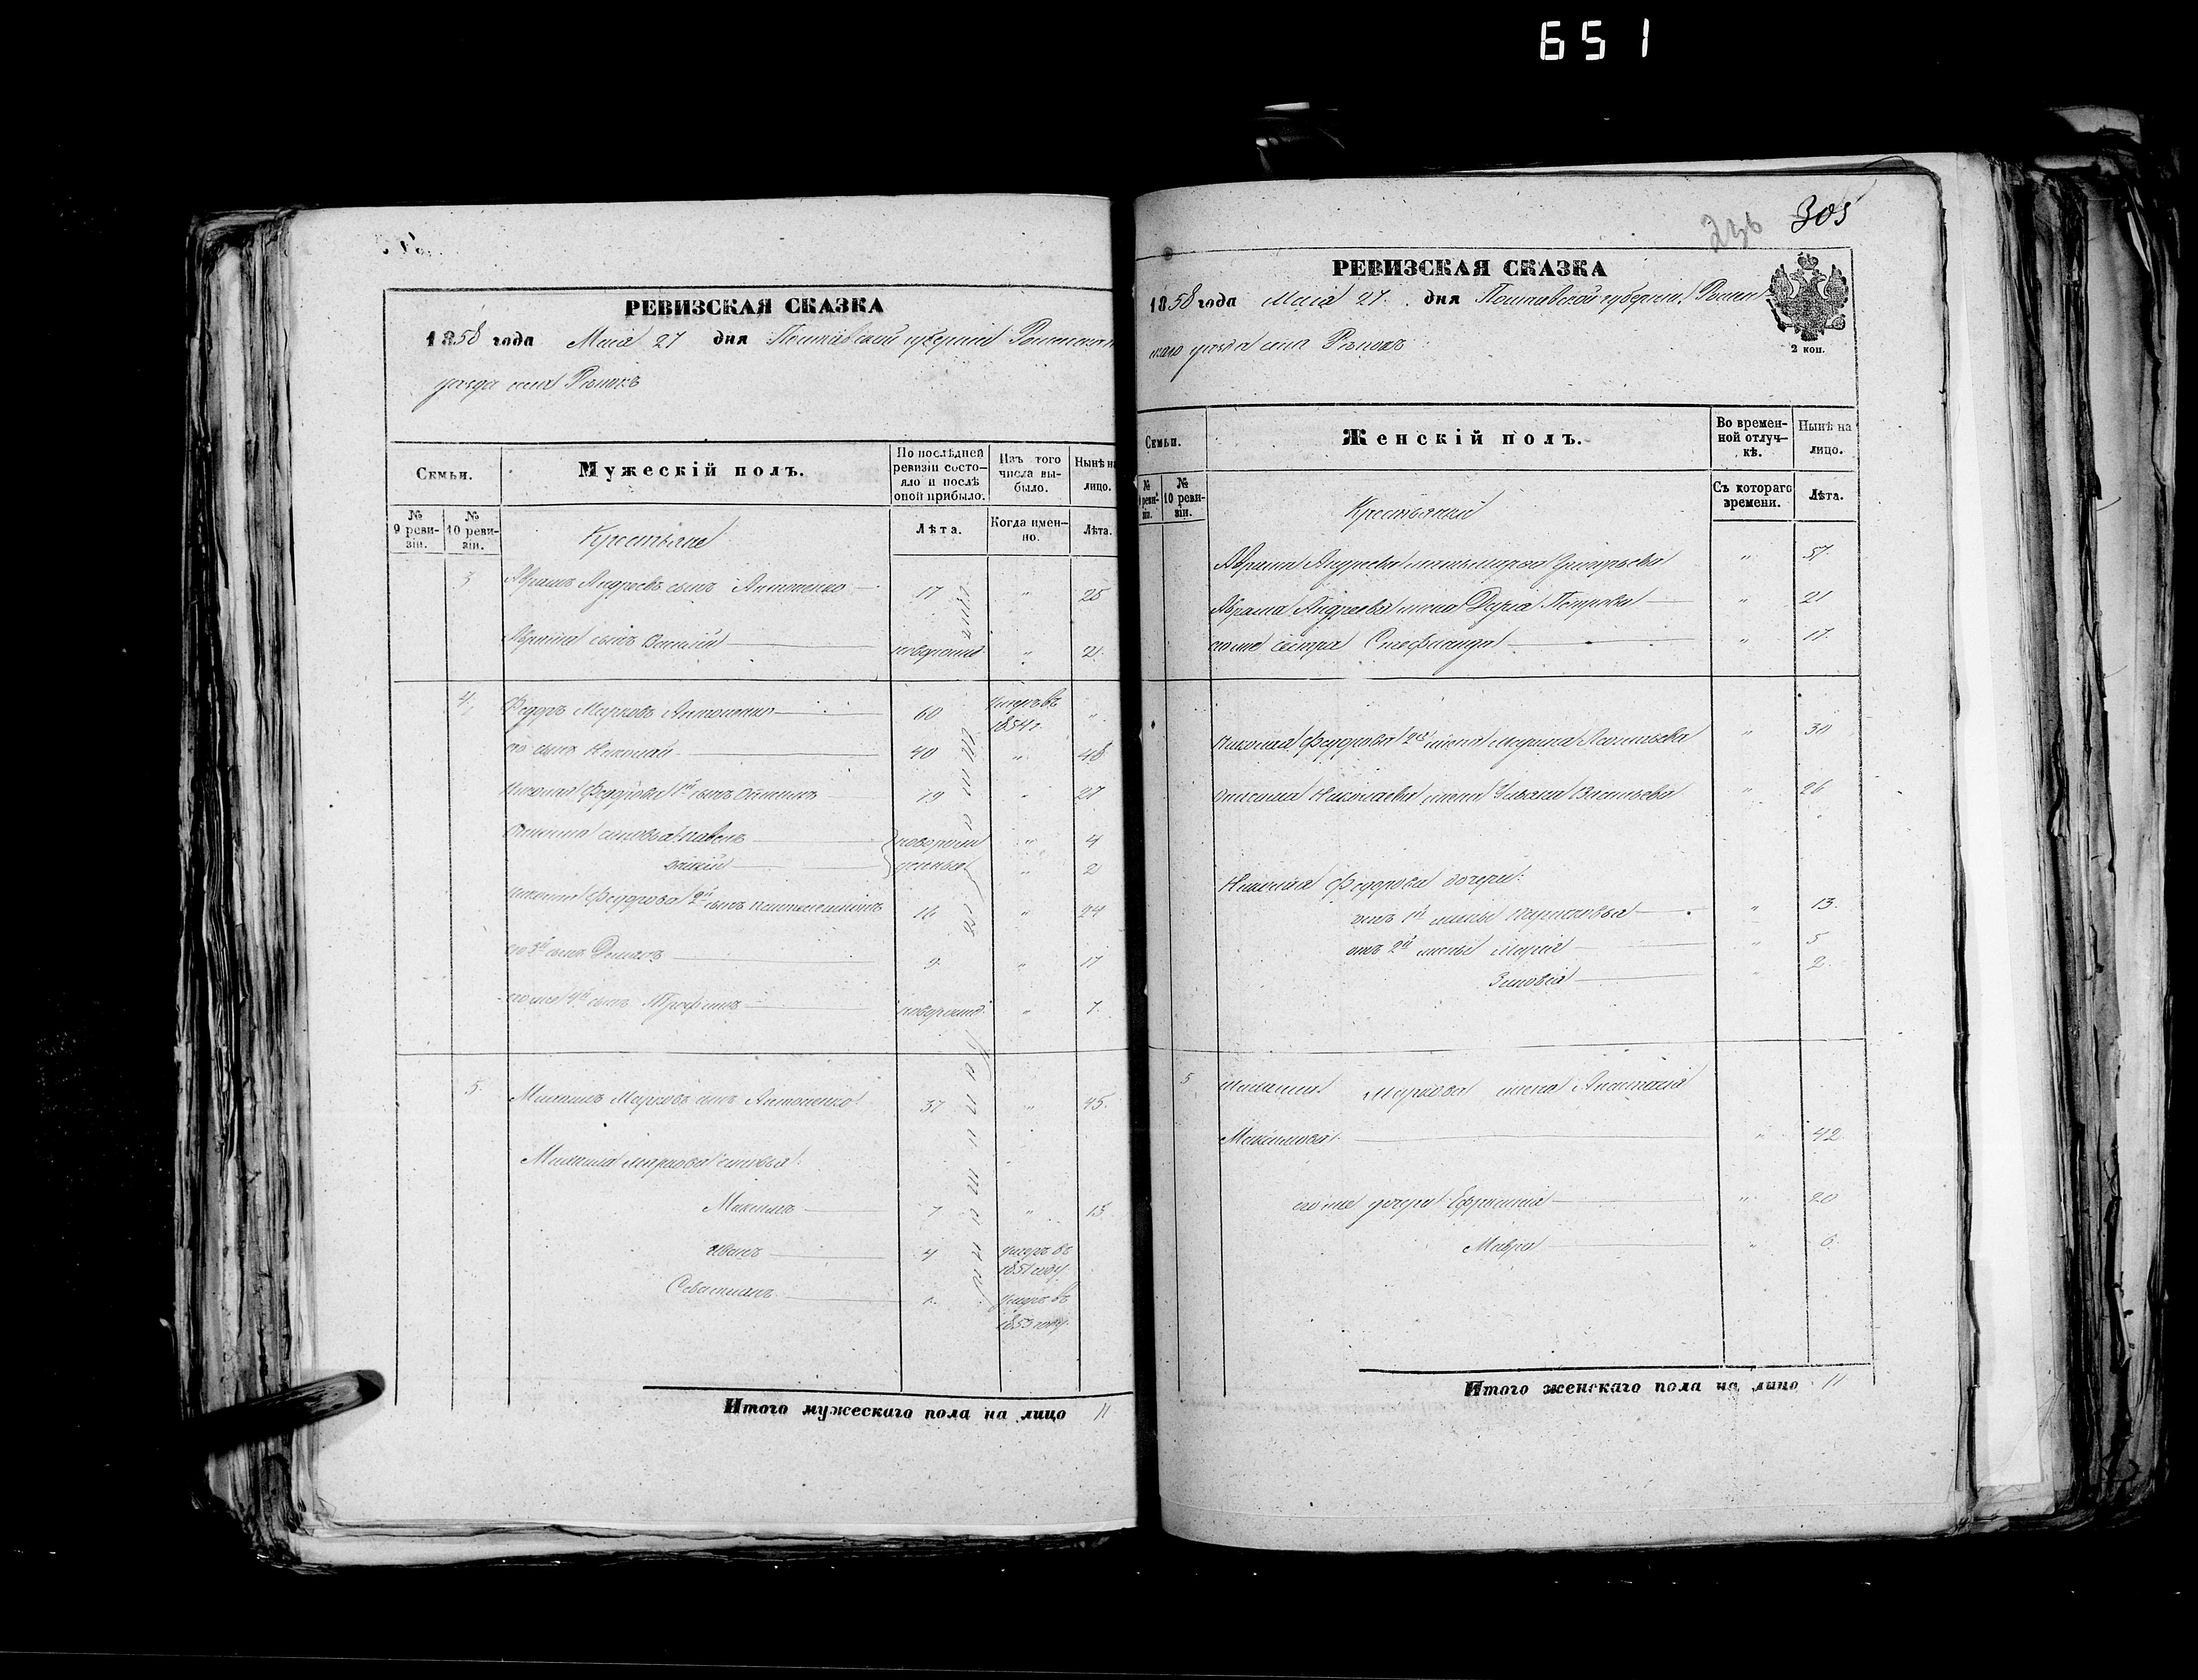 651
РЕВИЗСКАЯ СКАЗКА
1858 года Маія 27 дня Полтавской губерніи Роменскаго
уѣзда села
Семьи.
№ 9 ревизіи.
№ 10 ревизіи.
Мужескій полъ.
По послѣдней ревизіи состояло и послѣ оной прибыло.
Изъ того числа выбыло.
Нынѣ на лицо.
Лѣта.
Когда именно.
Лѣта.
Крестьяне
3 Абрамъ Андреевъ сынъ Антоненко 17 " 25
Абрама сынъ Василій новорожд " 2
4 Федоръ Марковъ Антоненко 60 умеръ въ 1854 г. "
его сынъ Николай 40 " 48
Николая Федорова 1й сынъ 19 " 27
сыновья Павелъ новорож " 4
денные " 2
Николая Федорова 2й сынъ 16 " 24
его 3й сынъ Демьянъ 9 " 17
его же 4й сынъ Трофимъ новорожд " 7
5 Михаилъ Марковъ сынъ Антоненко 37 " 45
Михаила Маркова сыновья:
Максимъ 7 " 15
Иванъ 4 умеръ въ 1851 году
Севастіанъ 1 умеръ въ 1853 году
Итого мужескаго пола на лицо 11
236 305
РЕВИЗСКАЯ СКАЗКА
1858 года Маія 27 дня Полтавской губерніи Ромен
скаго уѣзда села
2 коп.
Семьи.
№ 9 ревизіи.
№ 10 ревизіи.
Женскій полъ.
Во временной отлучкѣ.
Нынѣ на лицо.
Съ котораго времени.
Лѣта.
Крестьянки
Абрама Андреева мать Григорьева " 57
Абрама Андреева жена Дарія Петрова " 21
его же сестра " 17
Николая Федорова 2я жена Марина Леонтьева " 30
Николаева жена Ульяна " 26
Николая Федорова дочери:
отъ 1й жены " 13
отъ 2й жены Марія " 5
Зиновія " 2
5 Михаила Маркова жена Анастасія
Максимова " 42
его же дочери Ефросинія " 20
Мавра " 6
Итого женскаго пола на лицо 11